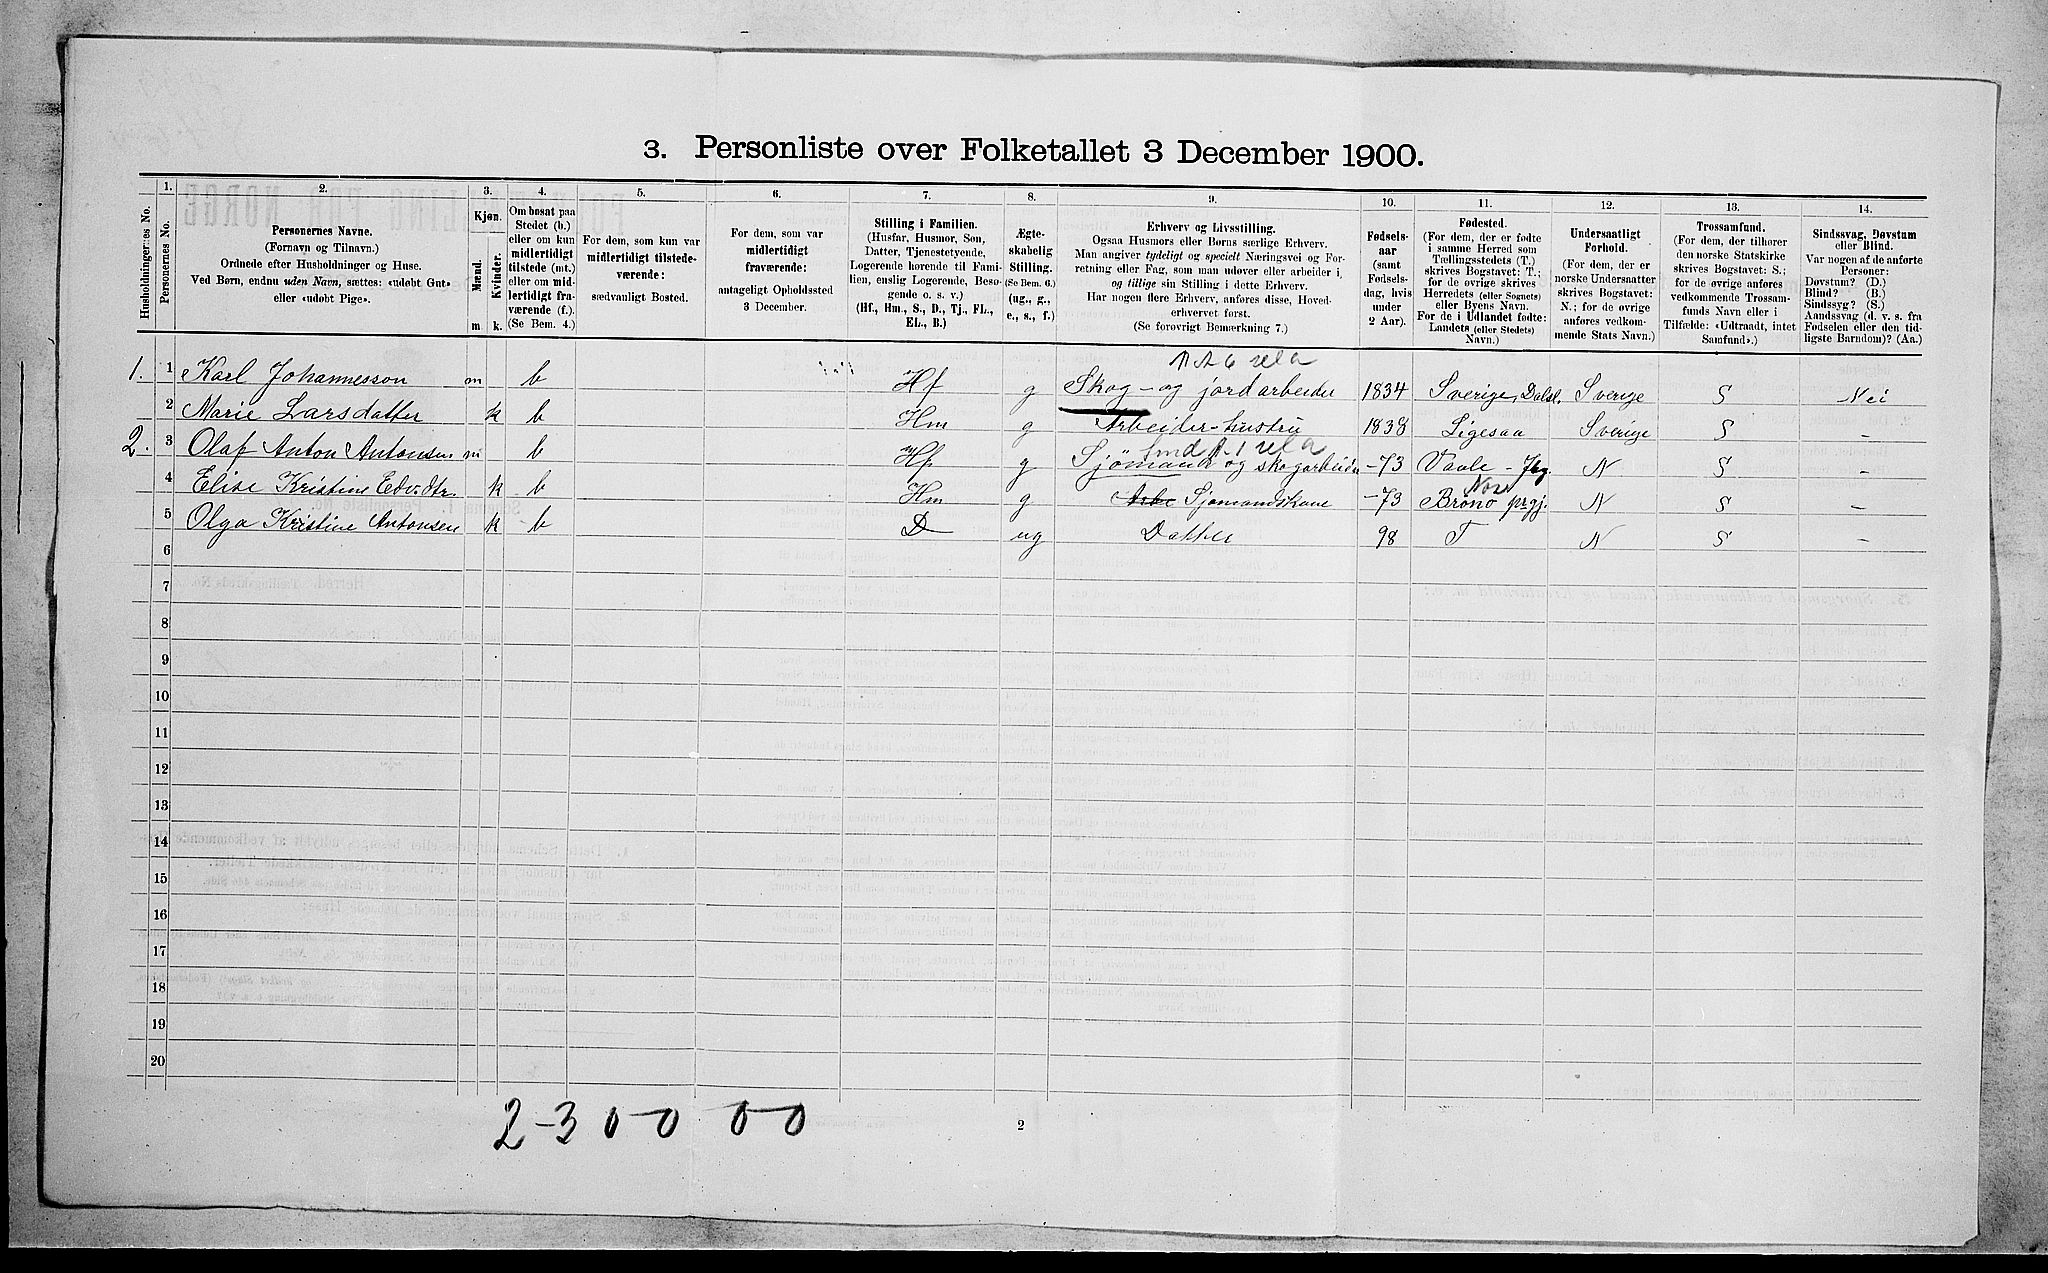 3. Personliste over Folketallet 3 December 1900.
1. 2. 3. 4. 5. 6. 7. 8. 9. 10. 11. 12. 13. 14.
Husholdningernes No.
Personernes No.
Personernes Navne.
(Fornavn og Tilnavn.)
Ordnede efter Husholdninger og Huse.
Ved Børn, endnu uden Navn, sættes: «udøbt Gut»
eller «udøbt Pige».
Kjøn.
Mænd.
Kvinder.
m k.
Om bosat paa
Stedet (b.)
eller om kun
midlertidigt
tilstede (mt.)
eller om mid-
lertidigt fra-
værende (f.)
(Se Bem. 4.)
For dem, som kun var
midlertidigt tilstede-
værende:
sædvanligt Bosted.
For dem, som var
midlertidigt
fraværende:
antageligt Opholdssted
3 December.
Stilling i Familien.
(Husfar, Husmor, Søn,
Datter, Tjenestetyende,
Logerende hørende til Fami-
lien, enslig Logerende, Besø-
gende o. s. v.)
(Hf., Hm., S., D., Tj., FL.,
EL., B.)
Ægte-
skabelig
Stilling.
(Se Bem. 6.)
(ug., g.,
e., s., f.)
Erhverv og Livsstilling.
Ogsaa Husmors eller Børns særlige Erhverv.
Man angiver tydeligt og specielt Næringsvei og For-
retning eller Fag, som man udøver eller arbeider i,
og tillige sin Stilling i dette Erhverv.
Har nogen flere Erhverv, anføres disse, Hoved-
erhvervet først.
(Se forøvrigt Bemærkning 7.)
Fødsels-
aar
(samt
Fødsels-
dag, hvis
under
2 Aar).
Fødested.
(For dem, der er fødte
i samme Herred som
Tællingsstedets (T.)
skrives Bogstavet: T.;
for de øvrige skrives
Herredets (eller Sognets)
eller Byens Navn.
For de i Udlandet fødte:
Landets (eller Stedets)
Navn.)
Undersaatligt
Forhold.
(For dem, der er
norske Undersaatter
skrives Bogstavet:
N.; for de øvrige
anføres vedkom-
mende Stats Navn.)
Trossamfund.
(For dem, der tilhører
den norske Statskirke
skrives Bogstavet: S.;
for de øvrige anføres
vedkommende Trossam-
funds Navn eller i
Tilfælde: «Udtraadt, intet
Samfund».)
Sindssvag, Døvstum
eller Blind.
Var nogen af de anførte
Personer:
Døvstum? (D.)
Blind? (B.)
Sindssyg? (S.)
Aandssvag (d. v. s. fra
Fødselen eller den tid-
ligste Barndom)? (Aa.)
1. 1 Karl Johannesson m b Hf g Skog- og jordarbeider 1834 Sverige, Dalsl. Sverige S Nei
2 Marie Larsdatter k b Hm g Arbeider-hustru 1838 Ligesaa Sverige S –
2. 3 Olaf Anton Antonsen m b Hf g Sjömand og skogarbeider –73 Vaale – N S –
4 Elise Kristine Edv.dtr. k b Hm g Arbe Sjömandskone –73 Brönö prgj. N S –
5 Olga Kristine Antonsen k b D ug Datter 98 T N S –
6
7
8
9
10
11
12
13
14
15
16
17
18
19
20
2-3 0-0 0-0
2